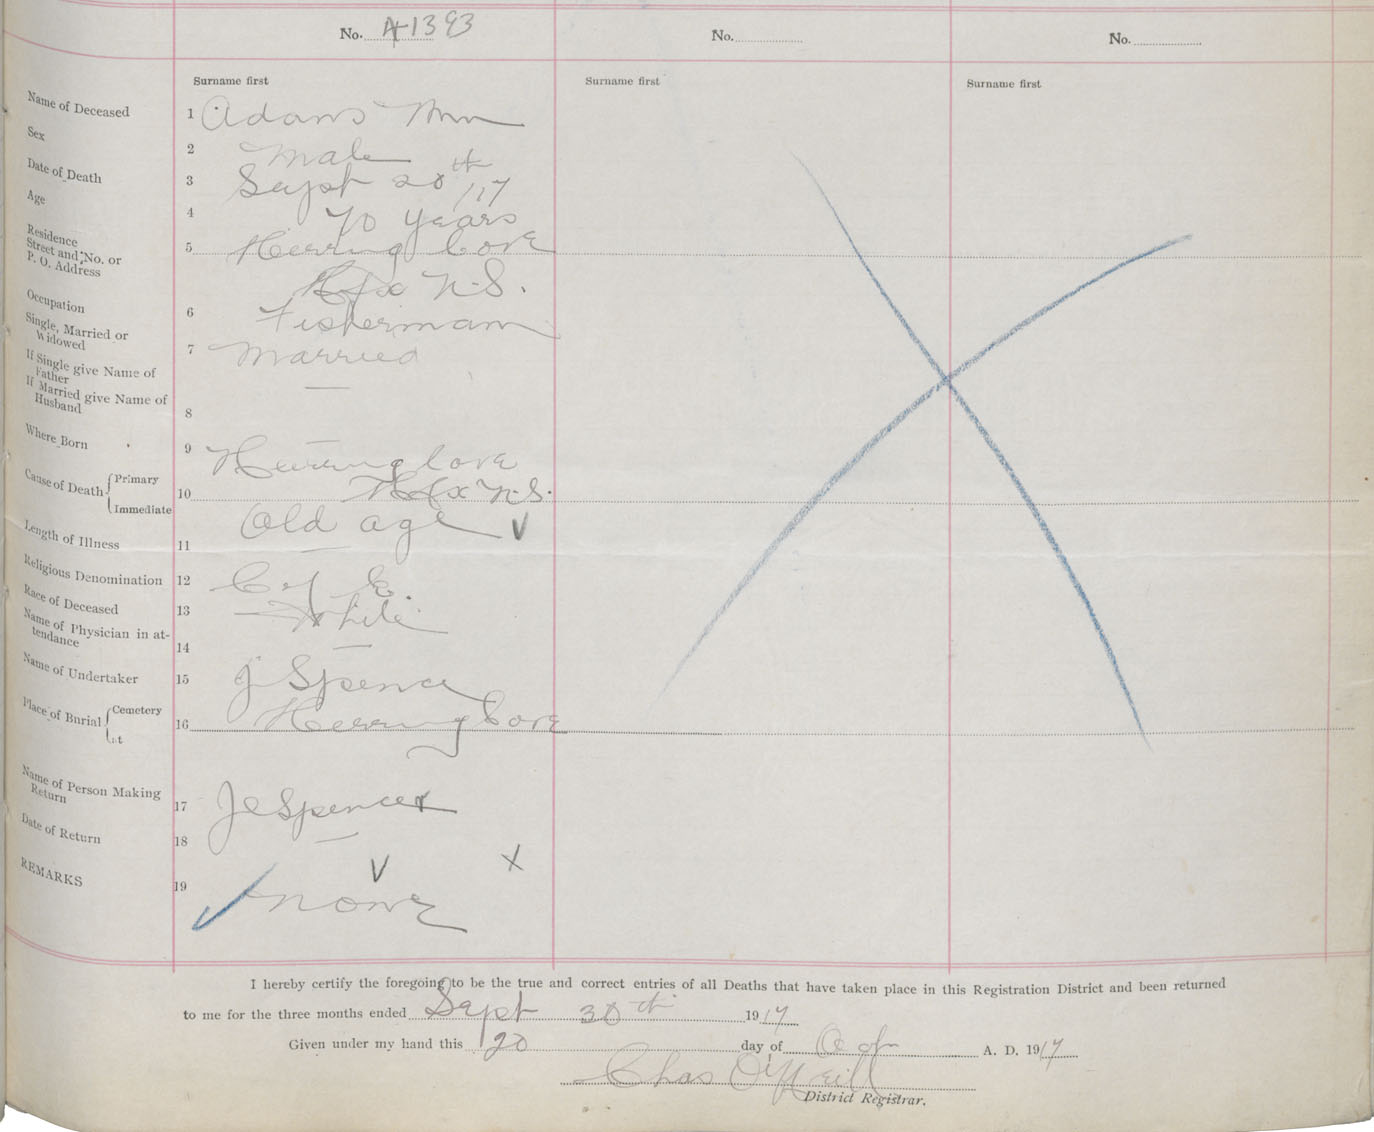 No. A1393
No.
No.
Surname first
Surname first
Surname first
Name of Deceased 1 Adams Wm
Sex 2 Male
Date of Death 3 Sept 20th /17
Age 4 70 years
Residence
Street and No. or
P. O. Address 5 Herring Cove
Hfx N.S.
Occupation 6 Fisherman
Single, Married or
Widowed 7 Married
If Single give Name of
Father —
If Married give Name of
Husband 8 —
Where Born 9 Herring Cove
Hfx N.S.
Cause of Death { Primary
Immediate 10 Old age V
Length of Illness 11 —
Religious Denomination 12 C of E.
Race of Deceased 13 White
Name of Physician in at-
tendance 14 —
Name of Undertaker 15 J Spence
Place of Burial { Cemetery
Lot 16 Herring Cove
Name of Person Making
Return 17 J E Spencer
Date of Return 18 —
V X
REMARKS 19 None
I hereby certify the foregoing to be the true and correct entries of all Deaths that have taken place in this Registration District and been returned
to me for the three months ended Sept 30th 1917
Given under my hand this 20 day of A. D. 1917
Chas O'Neill
District Registrar.